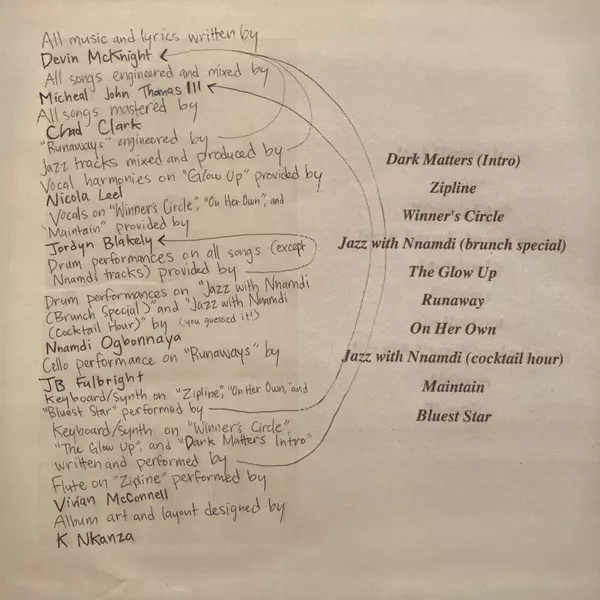 All music and lyrics written by
Devin McKnight
All songs engineered and mixed by
Micheal John Thomas III
All songs mastered by
Chad Clark
"Runaways" engineered by
Jazz tracks mixed and produced by
Vocal harmonies on "Glow Up" provided by
Nicola Leel
Vocals on "Winner's Circle", "On Her Own", and
"Maintain" provided by
Jordyn Blakely
Drum performances on all songs (except
Nnamdi tracks) provided by
Drum performances on "Jazz with Nnamdi
(Brunch Special)" and "Jazz with Nnamdi
(Cocktail Hour)" by (you guessed it!)
Nnamdi Ogbonnaya
Cello performance on "Runaways" by
JB Fulbright
Keyboard/Synth on "Zipline", "On Her Own," and
"Bluest Star" performed by
Keyboard/Synth on "Winner's Circle",
"The Glow Up", and "Dark Matters Intro"
written and performed by
Flute on "Zipline" performed by
Vivian McConnell
Album art and layout designed by
K Nkanza
Dark Matters (Intro)
Zipline
Winner's Circle
Jazz with Nnamdi (brunch special)
The Glow Up
Runaway
On Her Own
Jazz with Nnamdi (cocktail hour)
Maintain
Bluest Star